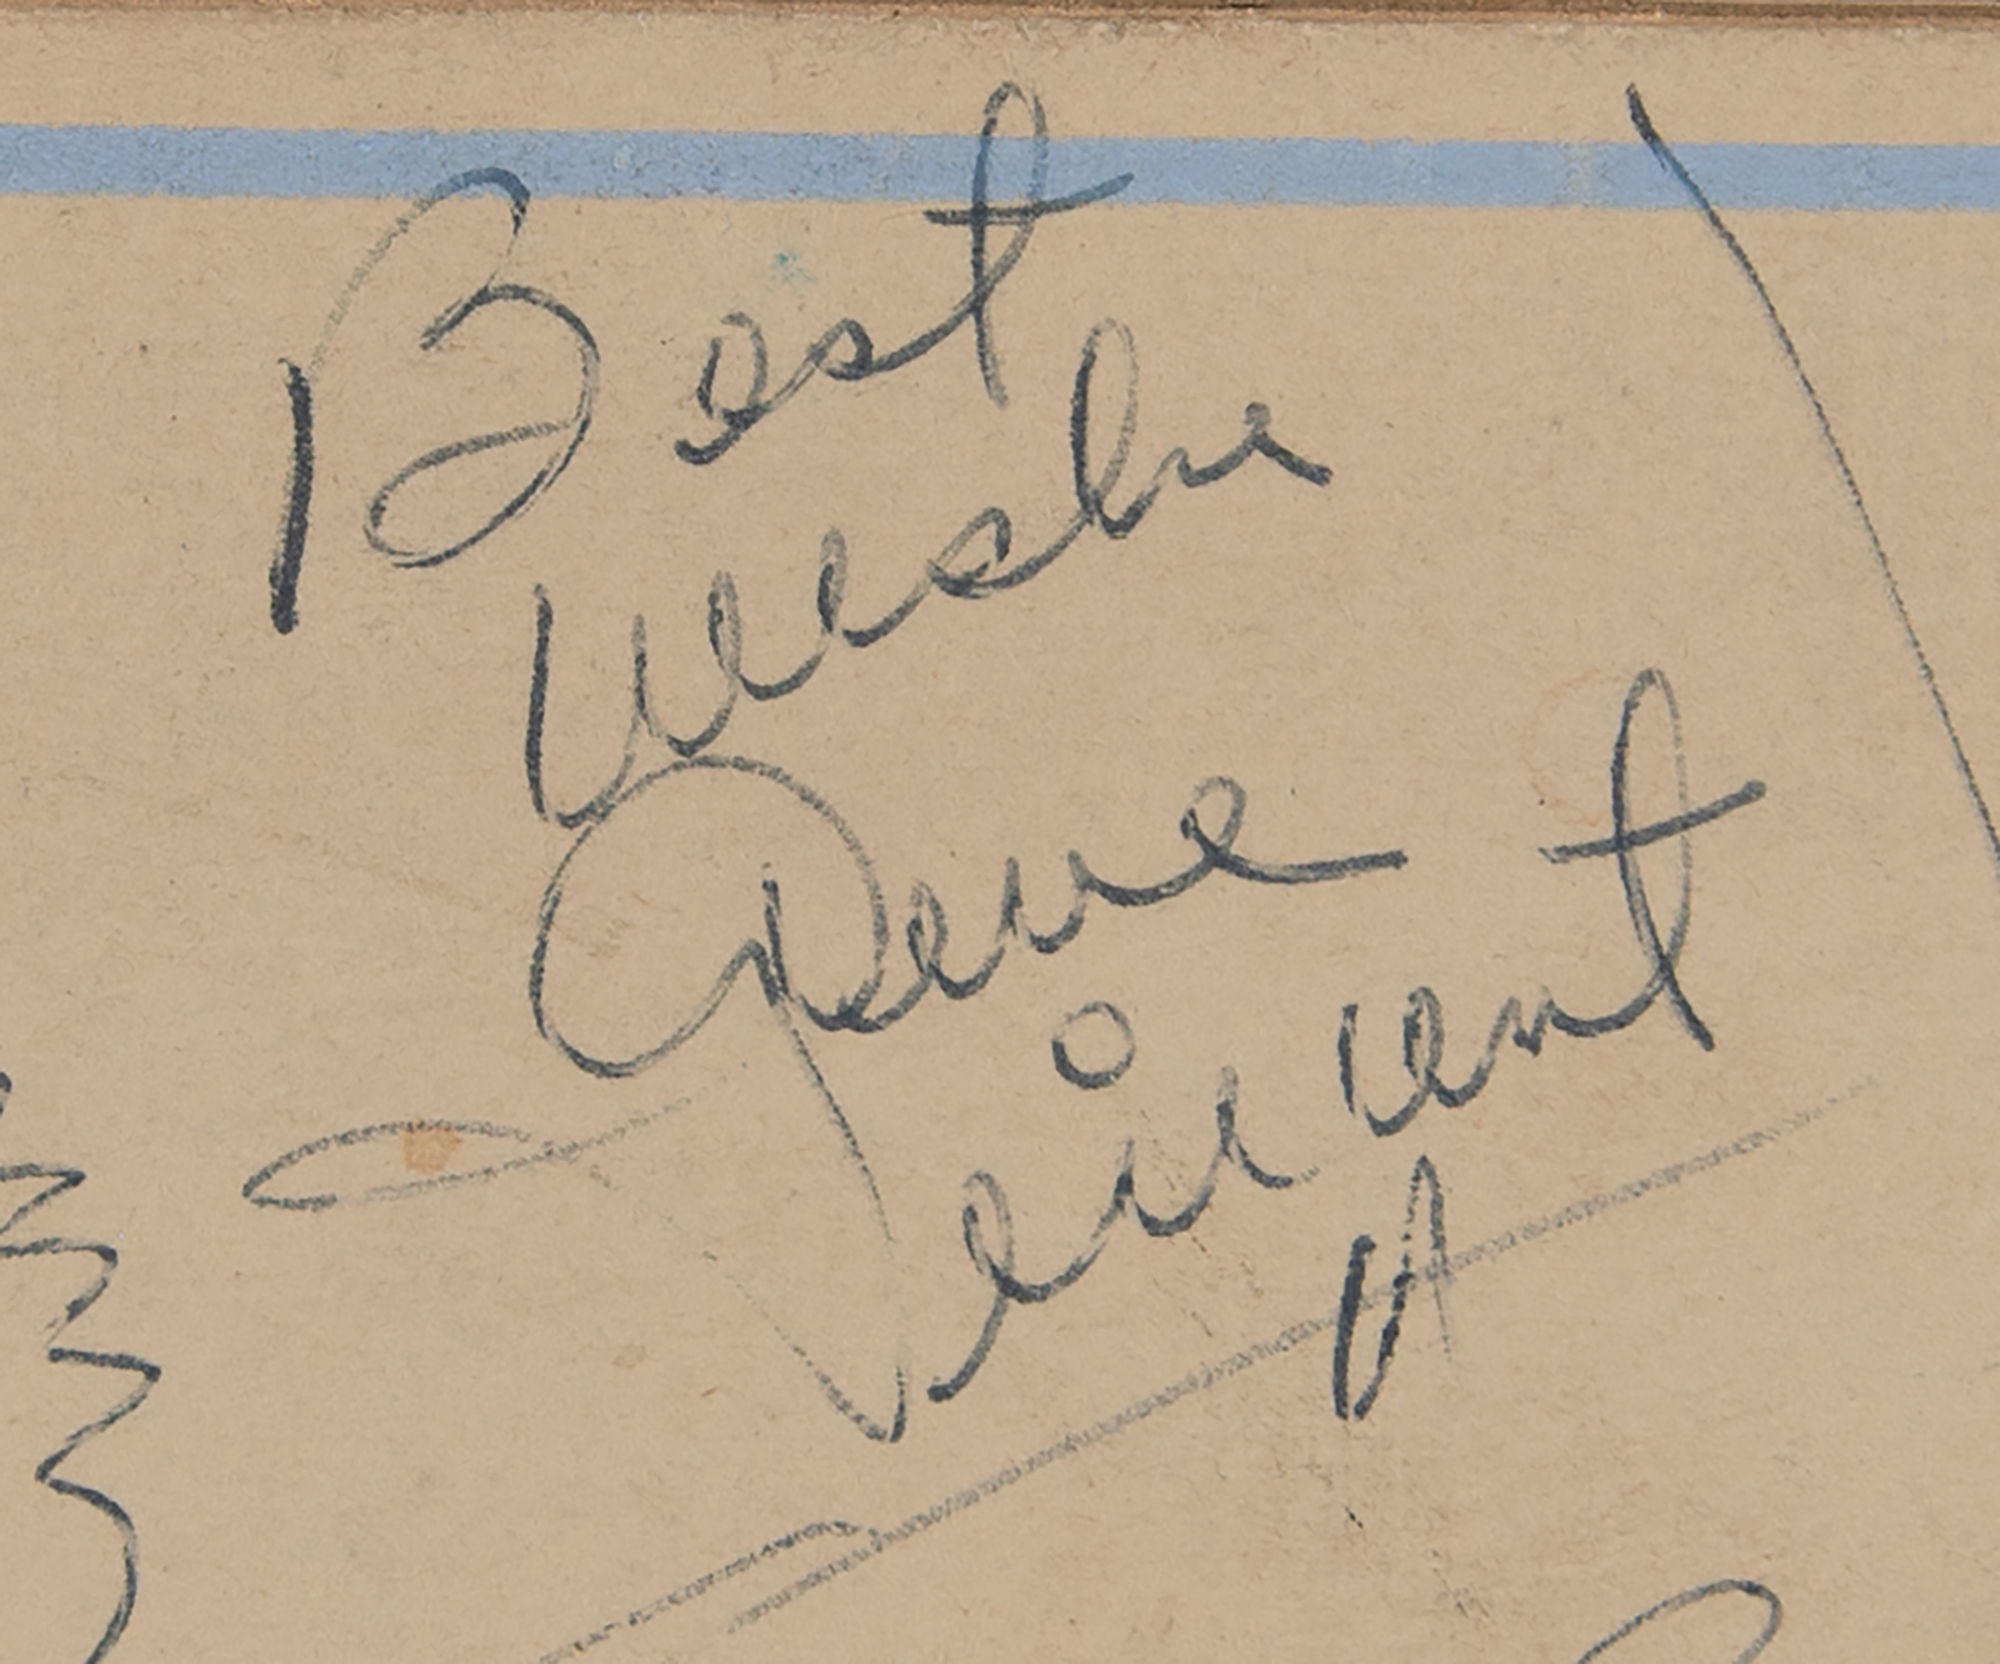 Best
Wishe
Gene
Vincent